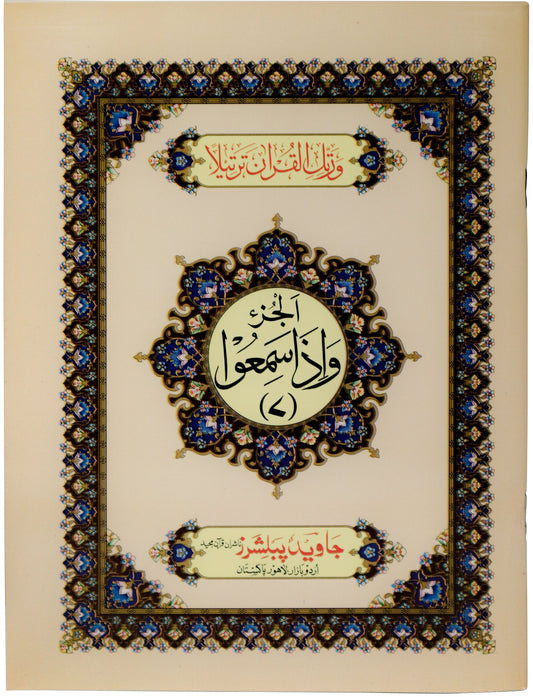 ورتل القرآن ترتيلا
الجزء
وَإِذَا سَمِعُوْا
(٧)
جاوید پبلشرز ناشران قرآن مجید
اردو بازار لاہور پاکستان